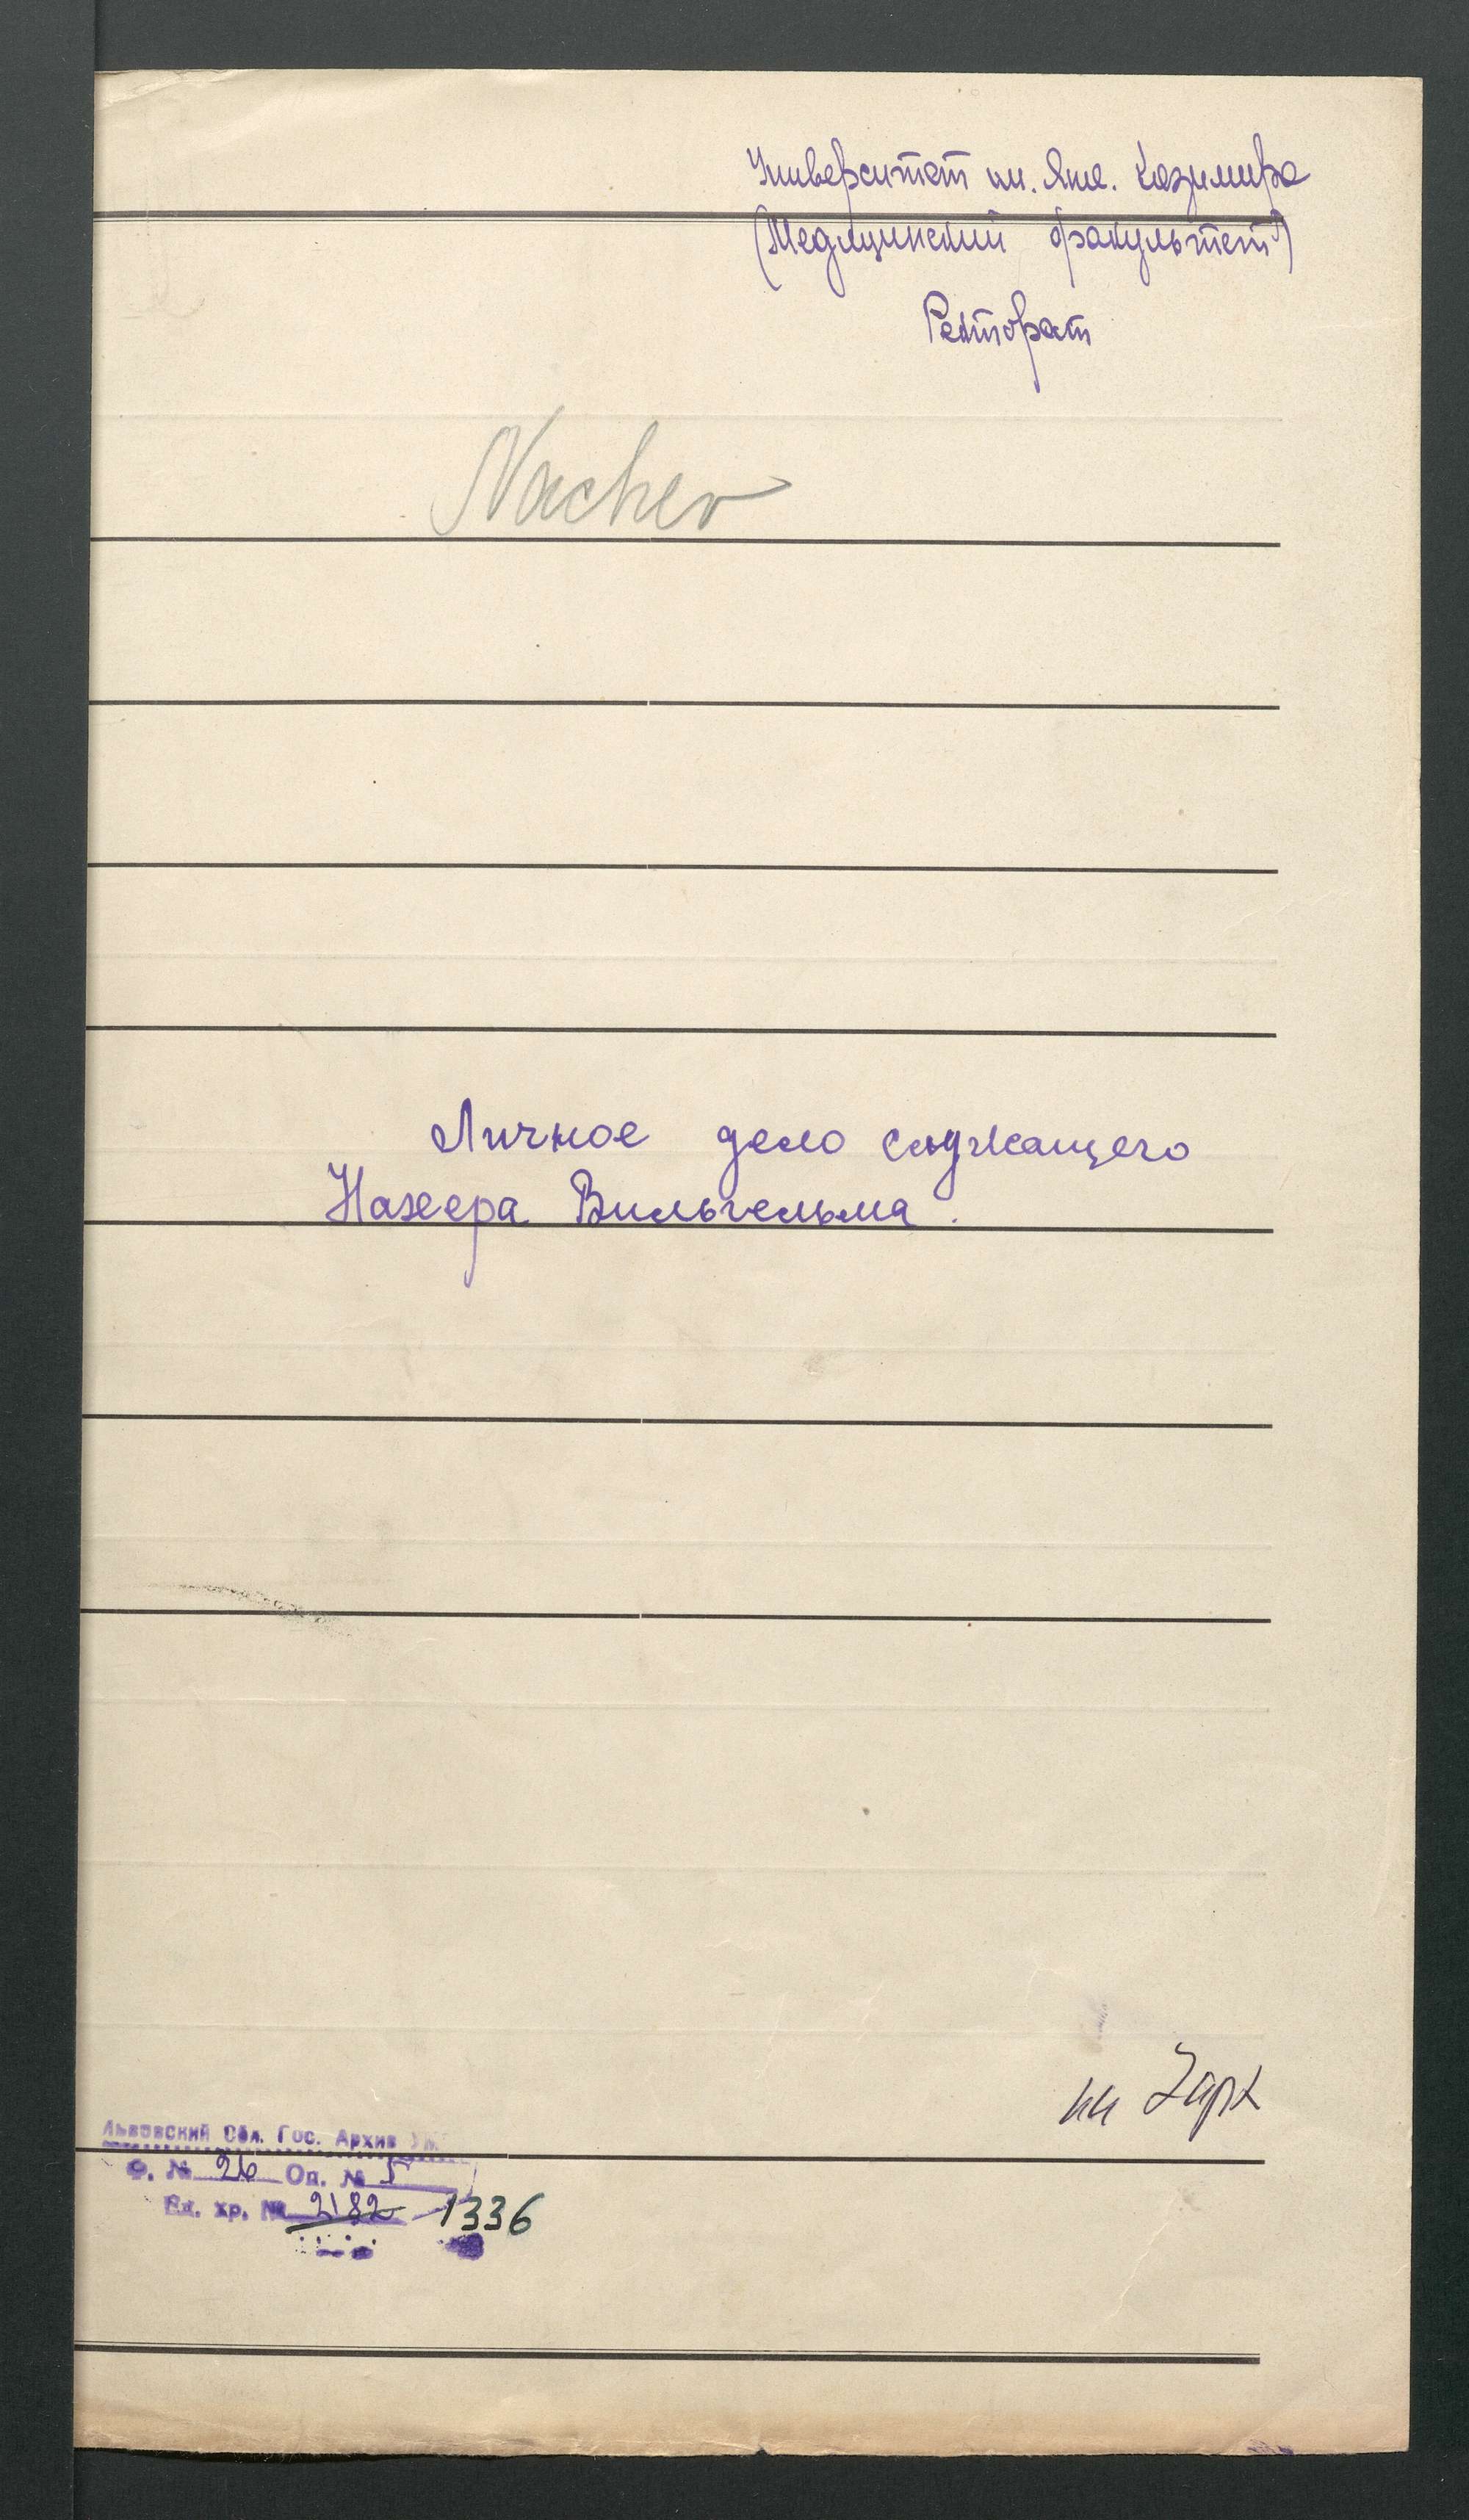 Университет им. Яна. Казимира
(Медицинский факультет)
Ректорат
Nacher
Личное дело служащего
Нахера Вильгельма.
Львовский Обл. Гос. Архив
Ф. № 26 Оп. № 5
Ед. хр. № 2182 1336